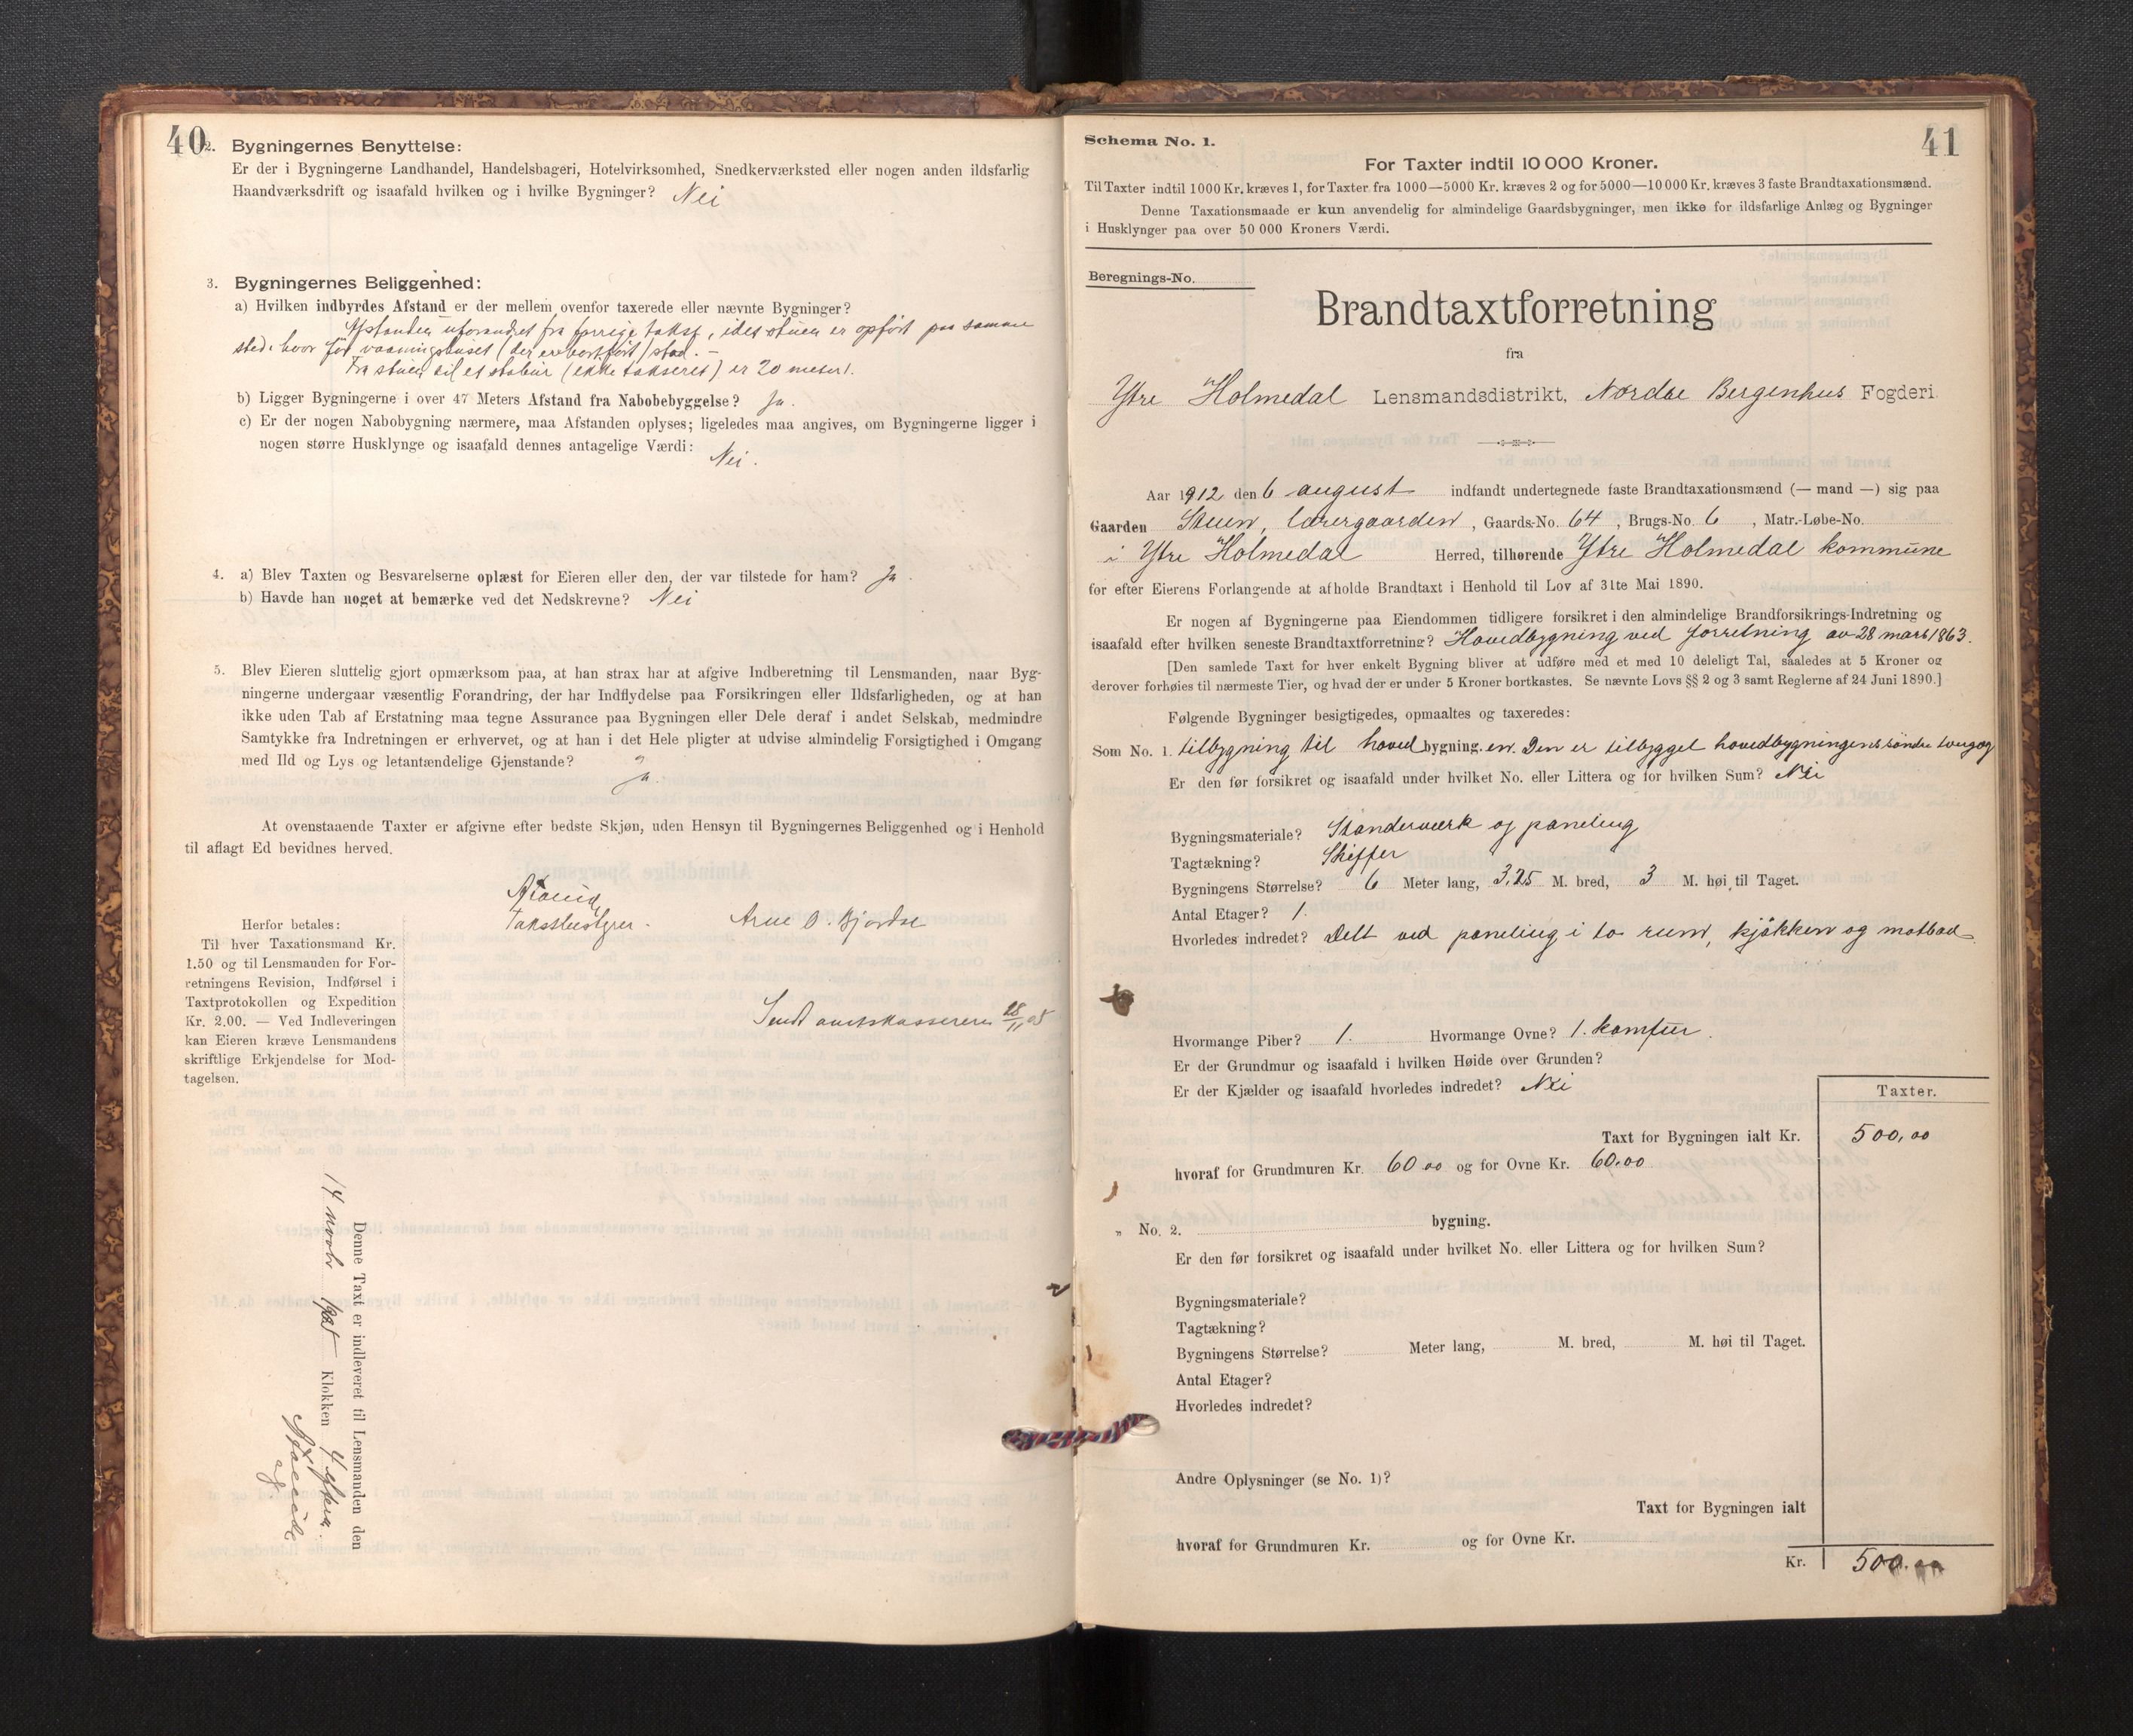 40
2. Bygningernes Benyttelse:
Er der i Bygningerne Landhandel, Handelsbageri, Hotelvirksomhed, Snedkerværksted eller nogen anden ildsfarlig
Haandværksdrift og isaafald hvilken og i hvilke Bygninger? Nei
3. Bygningernes Beliggenhed:
a) Hvilken indbyrdes Afstand er der mellem ovenfor taxerede eller nævnte Bygninger?
Afstanden uforandret fra forrige takst, idet stuen er opført paa samme
sted hvor før vaaningshuset (der er bortført) stod. –
Fra stuen til et stabur (ikke takseret) er 20 meter.
b) Ligger Bygningerne i over 47 Meters Afstand fra Nabobebyggelse? Ja.
c) Er der nogen Nabobygning nærmere, maa Afstanden oplyses; ligeledes maa angives, om Bygningerne ligger i
nogen større Husklynge og isaafald dennes antagelige Værdi: Nei.
4. a) Blev Taxten og Besvarelserne oplæst for Eieren eller den, der var tilstede for ham? Ja.
b) Havde han noget at bemærke ved det Nedskrevne? Nei
5. Blev Eieren sluttelig gjort opmærksom paa, at han strax har at afgive Indberetning til Lensmanden, naar Byg-
ningerne undergaar væsentlig Forandring, der har Indflydelse paa Forsikringen eller Ildsfarligheden, og at han
ikke uden Tab af Erstatning maa tegne Assurance paa Bygningen eller Dele deraf i andet Selskab, medmindre
Samtykke fra Indretningen er erhvervet, og at han i det Hele pligter at udvise almindelig Forsigtighed i Omgang
med Ild og Lys og letantændelige Gjenstande? Ja.
At ovenstaaende Taxter er afgivne efter bedste Skjøn, uden Hensyn til Bygningernes Beliggenhed og i Henhold
til aflagt Ed bevidnes herved.
Takstbestyrer. Arne O. Bjordal
Herfor betales:
Til hver Taxationsmand Kr.
1.50 og til Lensmanden for For-
retningens Revision, Indførsel i
Taxtprotokollen og Expedition
Kr. 2.00. — Ved Indleveringen
kan Eieren kræve Lensmandens
skriftlige Erkjendelse for Mod-
tagelsen.
Sendt amtskassereren 28/11 05
Denne Taxt er indleveret til Lensmanden den
14 novbr 1905 Klokken 4 efterm.
41
Schema No. 1.
For Taxter indtil 10 000 Kroner.
Til Taxter indtil 1000 Kr. kræves 1, for Taxter fra 1000—5000 Kr. kræves 2 og for 5000—10 000 Kr. kræves 3 faste Brandtaxationsmænd.
Denne Taxationsmaade er kun anvendelig for almindelige Gaardsbygninger, men ikke for ildsfarlige Anlæg og Bygninger
i Husklynger paa over 50 000 Kroners Værdi.
Beregnings-No.
Brandtaxtforretning
fra
Ytre Holmedal Lensmandsdistrikt, Nordre Bergenhus Fogderi.
Aar 1912 den 6 august indfandt undertegnede faste Brandtaxationsmænd (— mand —) sig paa
Gaarden Steien, lærergaarden, Gaards-No. 64, Brugs-No. 6, Matr.-Løbe-No.
i Ytre Holmedal Herred, tilhørende Ytre Holmedal kommune
for efter Eierens Forlangende at afholde Brandtaxt i Henhold til Lov af 31te Mai 1890.
Er nogen af Bygningerne paa Eiendommen tidligere forsikret i den almindelige Brandforsikrings-Indretning og
isaafald efter hvilken seneste Brandtaxtforretning? Hovedbygning ved forretning av 28 mars 1863.
[Den samlede Taxt for hver enkelt Bygning bliver at udføre med et med 10 deleligt Tal, saaledes at 5 Kroner og
derover forhøies til nærmeste Tier, og hvad der er under 5 Kroner bortkastes. Se nævnte Lovs §§ 2 og 3 samt Reglerne af 24 Juni 1890.]
Følgende Bygninger besigtigedes, opmaaltes og taxeredes:
Som No. 1. tilbygning til hovedbygning.en. Den er tilbygget hovedbygningens søndre tvergog
Er den før forsikret og isaafald under hvilket No. eller Littera og for hvilken Sum? Nei
Bygningsmateriale? Standerverk og paneling
Tagtækning? Skiffer
Bygningens Størrelse? 6 Meter lang, 3,25 M. bred, 3 M. høi til Taget.
Antal Etager? 1.
Hvorledes indredet? Delt ved paneling i to rum, kjøkken og matbod
Hvormange Piber? 1. Hvormange Ovne? 1. komfur.
Er der Grundmur og isaafald i hvilken Høide over Grunden?
Er der Kjælder og isaafald hvorledes indredet? Nei
Taxter.
Taxt for Bygningen ialt Kr. 500,00
hvoraf for Grundmuren Kr. 60 00 og for Ovne Kr. 60.00
„ No. 2. bygning.
Er den før forsikret og isaafald under hvilket No. eller Littera og for hvilken Sum?
Bygningsmateriale?
Tagtækning?
Bygningens Størrelse? Meter lang, M. bred, M. høi til Taget.
Antal Etager?
Hvorledes indredet?
Andre Oplysninger (se No. 1)?
Taxt for Bygningen ialt
hvoraf for Grundmuren Kr. og for Ovne Kr.
Kr. 500.00